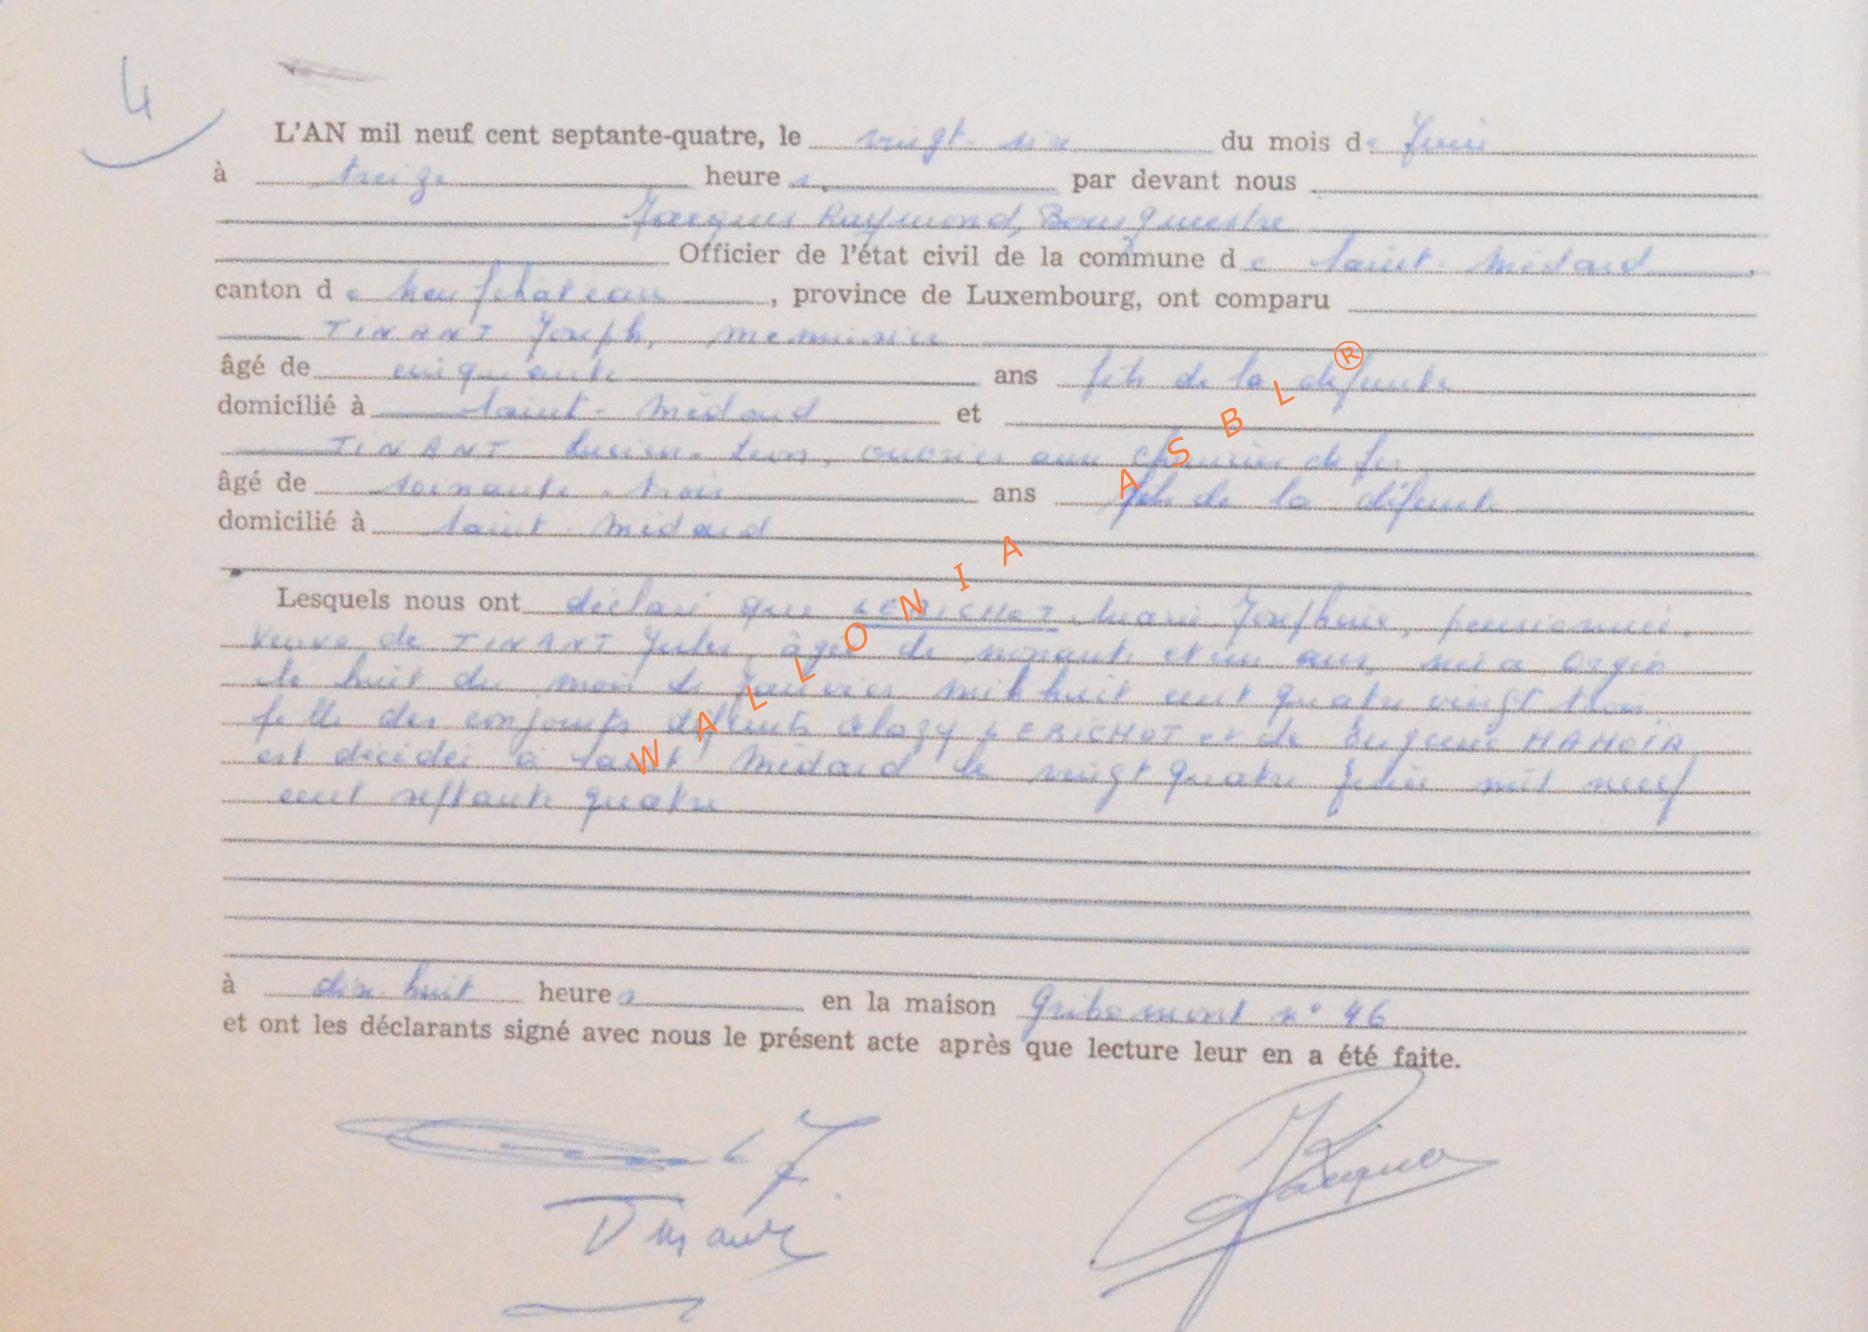 4
L'AN mil neuf cent septante-quatre, le vingt-six du mois de Juin
à treize heures par devant nous
Jacques Raymond, Bourgmestre
Officier de l'état civil de la commune de Saint-Médard,
canton de Neufchateau, province de Luxembourg, ont comparu
TINANT Joseph, menuisier
âgé de cinquante ans fils de la defunte
domicilié à Saint-Médard et
TINANT Lucien-Leon, ouvrier aux chemins de fer
âgé de soixante-trois ans fils de la défunte
domicilié à Saint-Médard
Lesquels nous ont déclaré que LERICHOT Marie Josephine, pensionnée,
Veuve de TINANT Jules, âgée de nonante et un ans, née a Orgéo
le huit du mois de janvier mil huit cent quatre vingt trois
fille des conjoints défunts LERICHOT et de Eugenie HAMOÏA
est décédée à Saint Médard le vingt quatre Juin mil neuf
cent septante quatre
à dix huit heures en la maison Gribomont n° 46
et ont les déclarants signé avec nous le présent acte après que lecture leur en a été faite.
Jacques
WALLONIA ASBL ®